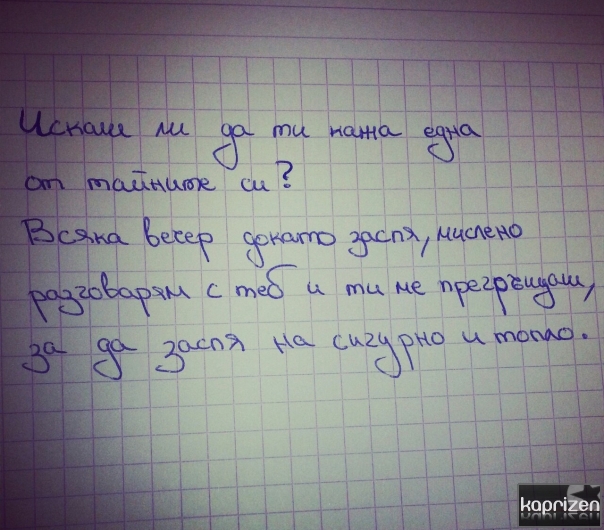 Искаш ли да ти кажа една
от тайните си?
Всяка вечер докато заспя, мислено
разговарям с теб и ти ме прегръщаш,
за да заспя на сигурно и топло.
kaprizen